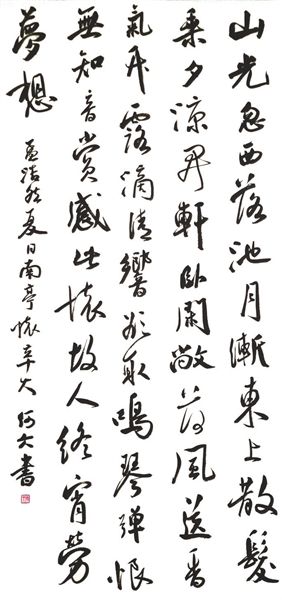 山光忽西落池月漸東上散髮
乘夕涼開軒臥閑敞荷風送香
氣竹露滴清響欲取鳴琴彈恨
無知音賞感此懷故人終宵勞
夢想
孟浩然夏日南亭懷辛大 書